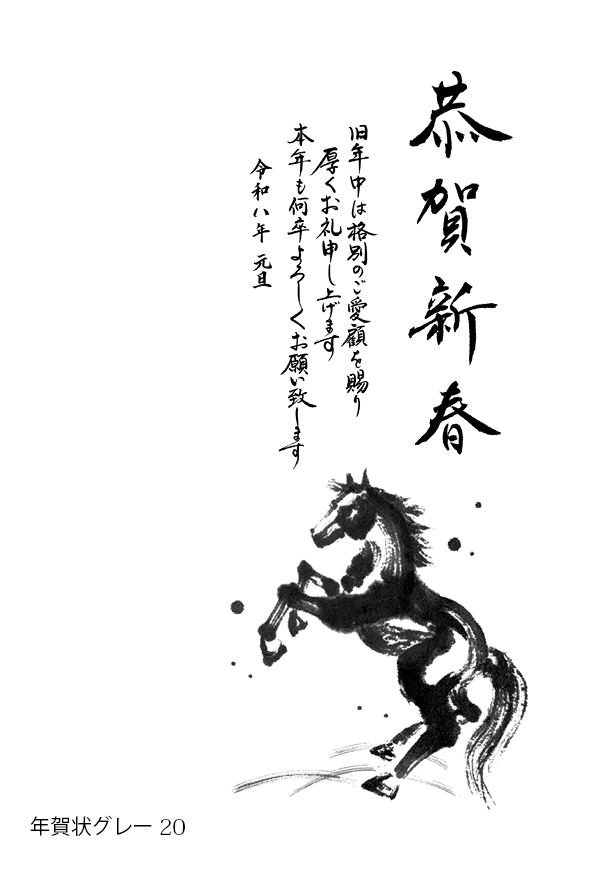 恭賀新春
旧年中は格別のご愛顧を賜り
厚くお礼申し上げます
本年も何卒よろしくお願い致します
令和八年 元旦
年賀状グレー 20